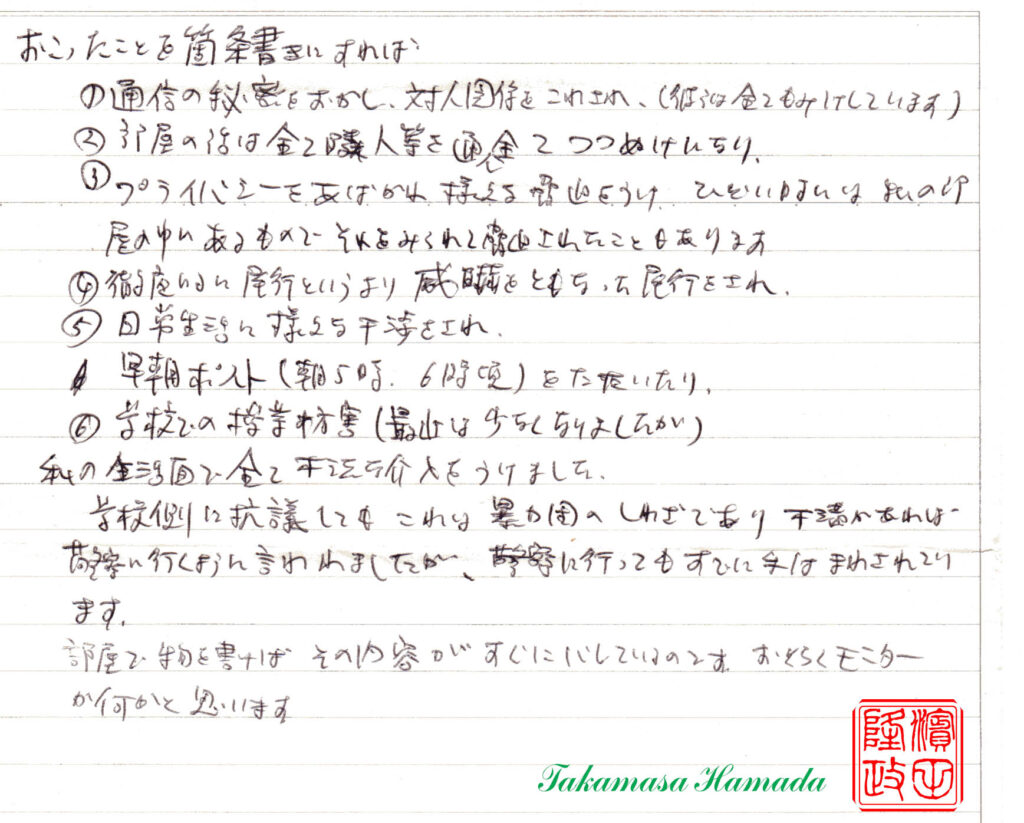 おこったことを箇条書きにすれば
①通信の秘密をおかし、対人関係をこわされ、(彼らは全てもみけしています)
②部屋の話は全て隣人等を通して つつぬけになり、
③プライバシーをあばかれ 様々な脅迫をうけ ひどいばあいは 私の部
屋の中にあるもので それをみられて脅迫されたこともあります
④徹底的に尾行というより 威嚇をともなった尾行をされ、
⑤日常生活に様々な干渉をされ、
早朝ポスト(朝5時、6時頃)をたたいたり、
⑥学校での授業妨害(最近は少なくなりましたが)
私の生活面で全て不法な介入をうけました、
学校側に抗議しても これは 暴力団のしわざであり 不満があれば
警察に行くように言われましたが、警察に行ってもすでに手はまわされており
ます。
部屋で物を書けば その内容がすぐにバレているのです。おそらくモニター
か何かと思います
Takamasa Hamada
濵田
隆政